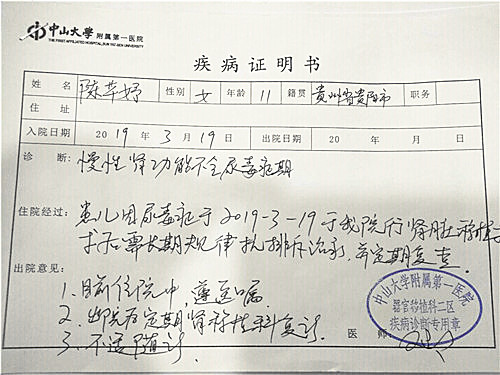 中山大学 附属第一医院
THE FIRST AFFILIATED HOSPITAL, SUN YAT-SEN UNIVERSITY
疾病证明书
姓名 陈芊妤 性别 女 年龄 11 籍贯 贵州省贵阳市 职务
住址
入院日期 2019年3月19日 出院日期 20 年 月 日
诊断: 慢性肾功能不全尿毒症期
住院经过: 患儿因尿毒症于2019-3-19于我院行肾脏移植
术后需长期规律抗排斥治疗,并定期复查.
出院意见:
1. 目前住院中,遵医嘱.
2. 出院后定期肾移植科复诊
3. 不适随诊.
中山大学附属第一医院
器官移植科二区
疾病诊断专用章
医师: